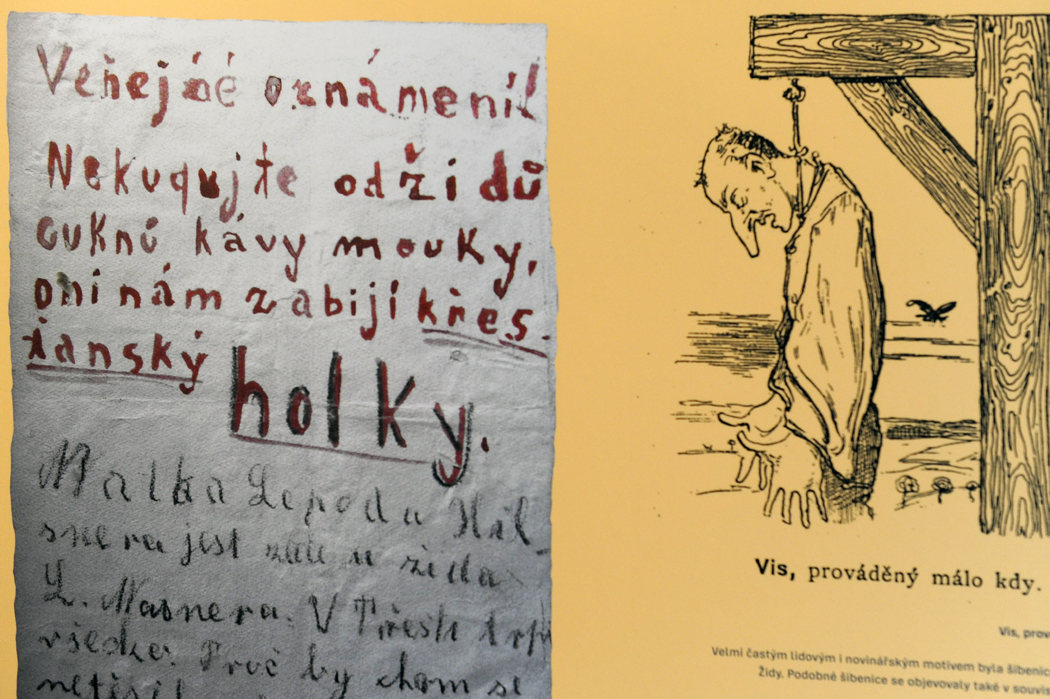 Veřejné oznámení!
Nekupujte od židů
cukru kávy mouky,
oni nám zabijí křes-
ťanský holky.
Matka Lepoda Hil-
snera jest u žida
L. Masnera. V Třešti trpí
všecko. Proč by chom se
netěšil
Vis, prováděný málo kdy.
Vis, prov
Velmi častým lidovým i novinářským motivem byla šibenic
Židy. Podobné šibenice se objevovaly také v souvis